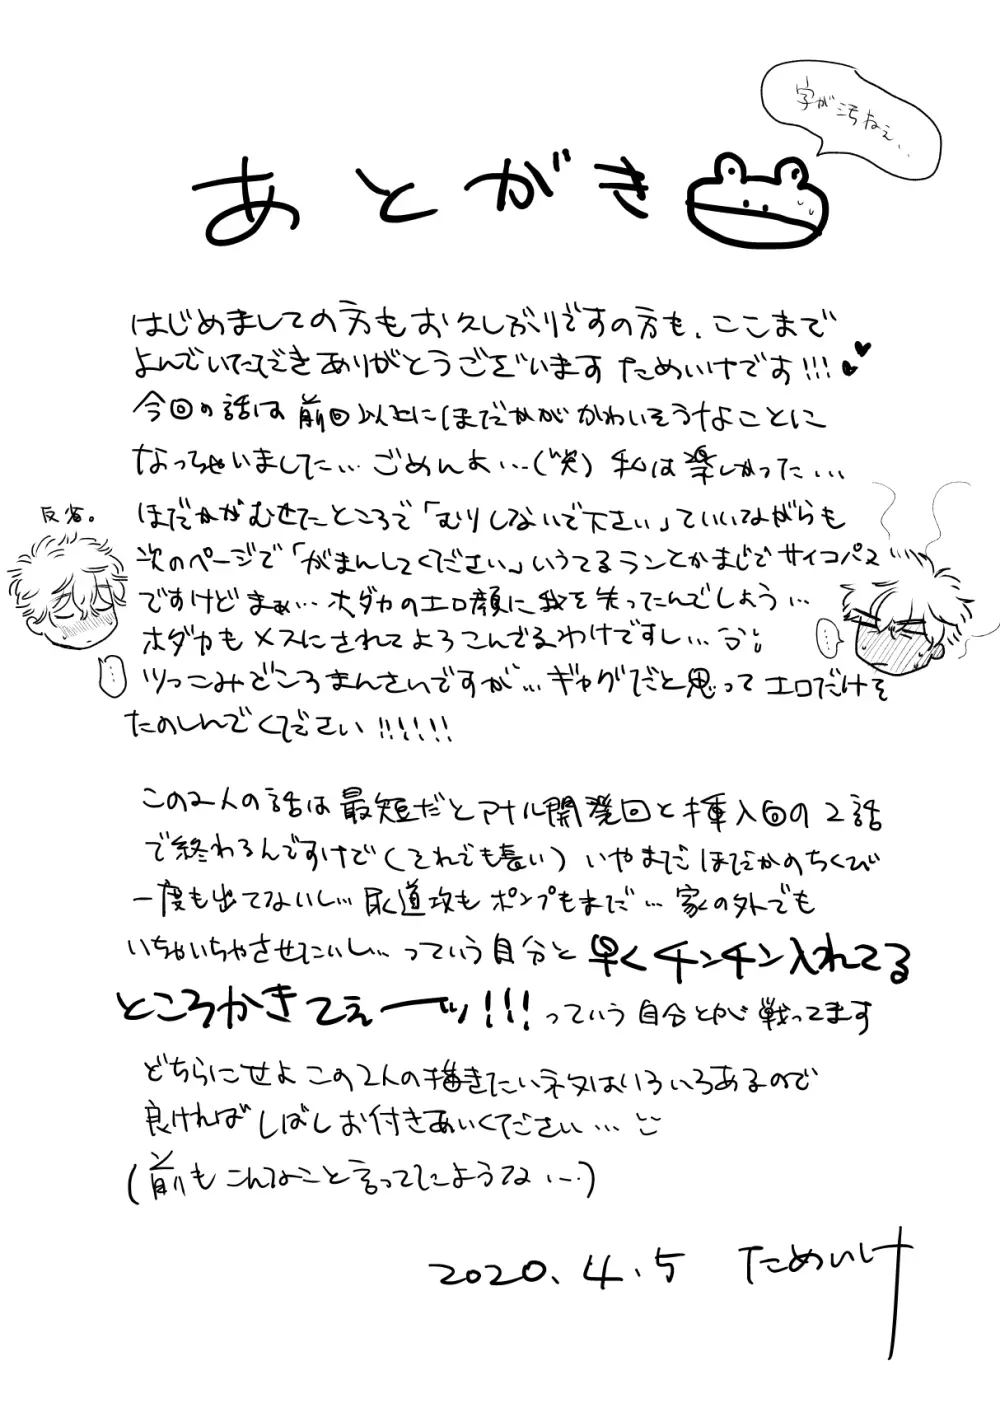 字が汚ねぇ...
あとがき
はじめましての方もお久しぶりですの方も、ここまで
よんでいただきありがとうございます ためいけです!!!
今回の話は前回以上にほだかがかわいそうなことに
なっちゃいました... ごめんよ...(笑) 私は楽しかった...
反省。
ほだかがむせたところで「むりしないで下さい」ていいながらも
次のページで「がまんしてください」いうてるランとかまじでサイコパス
ですけどまぁ... ホダカのエロ顔に我を失ってたんでしょう...
ホダカもメスにされてよろこんでるわけですし...
ツっこみどころまんさいですが... ギャグだと思ってエロだけを
たのしんでください!!!!!!
この2人の話は最短だとアナル開発回と挿入回の2話
で終わるんですけで(それでも長い) いやまだほだかのちくび
一度も出てないし... 尿道攻もポンプもまだ... 家の外でも
いちゃいちゃさせたいし... っていう自分と 早くチンチン入れてる
ところかきてぇーッ!!! っていう自分とが戦ってます
どちらにせよこの2人の描きたいネタはいろいろあるので
良ければしばしお付きあいください...
(前もこんなこと言ってたような...)
2020.4.5 ためいけ